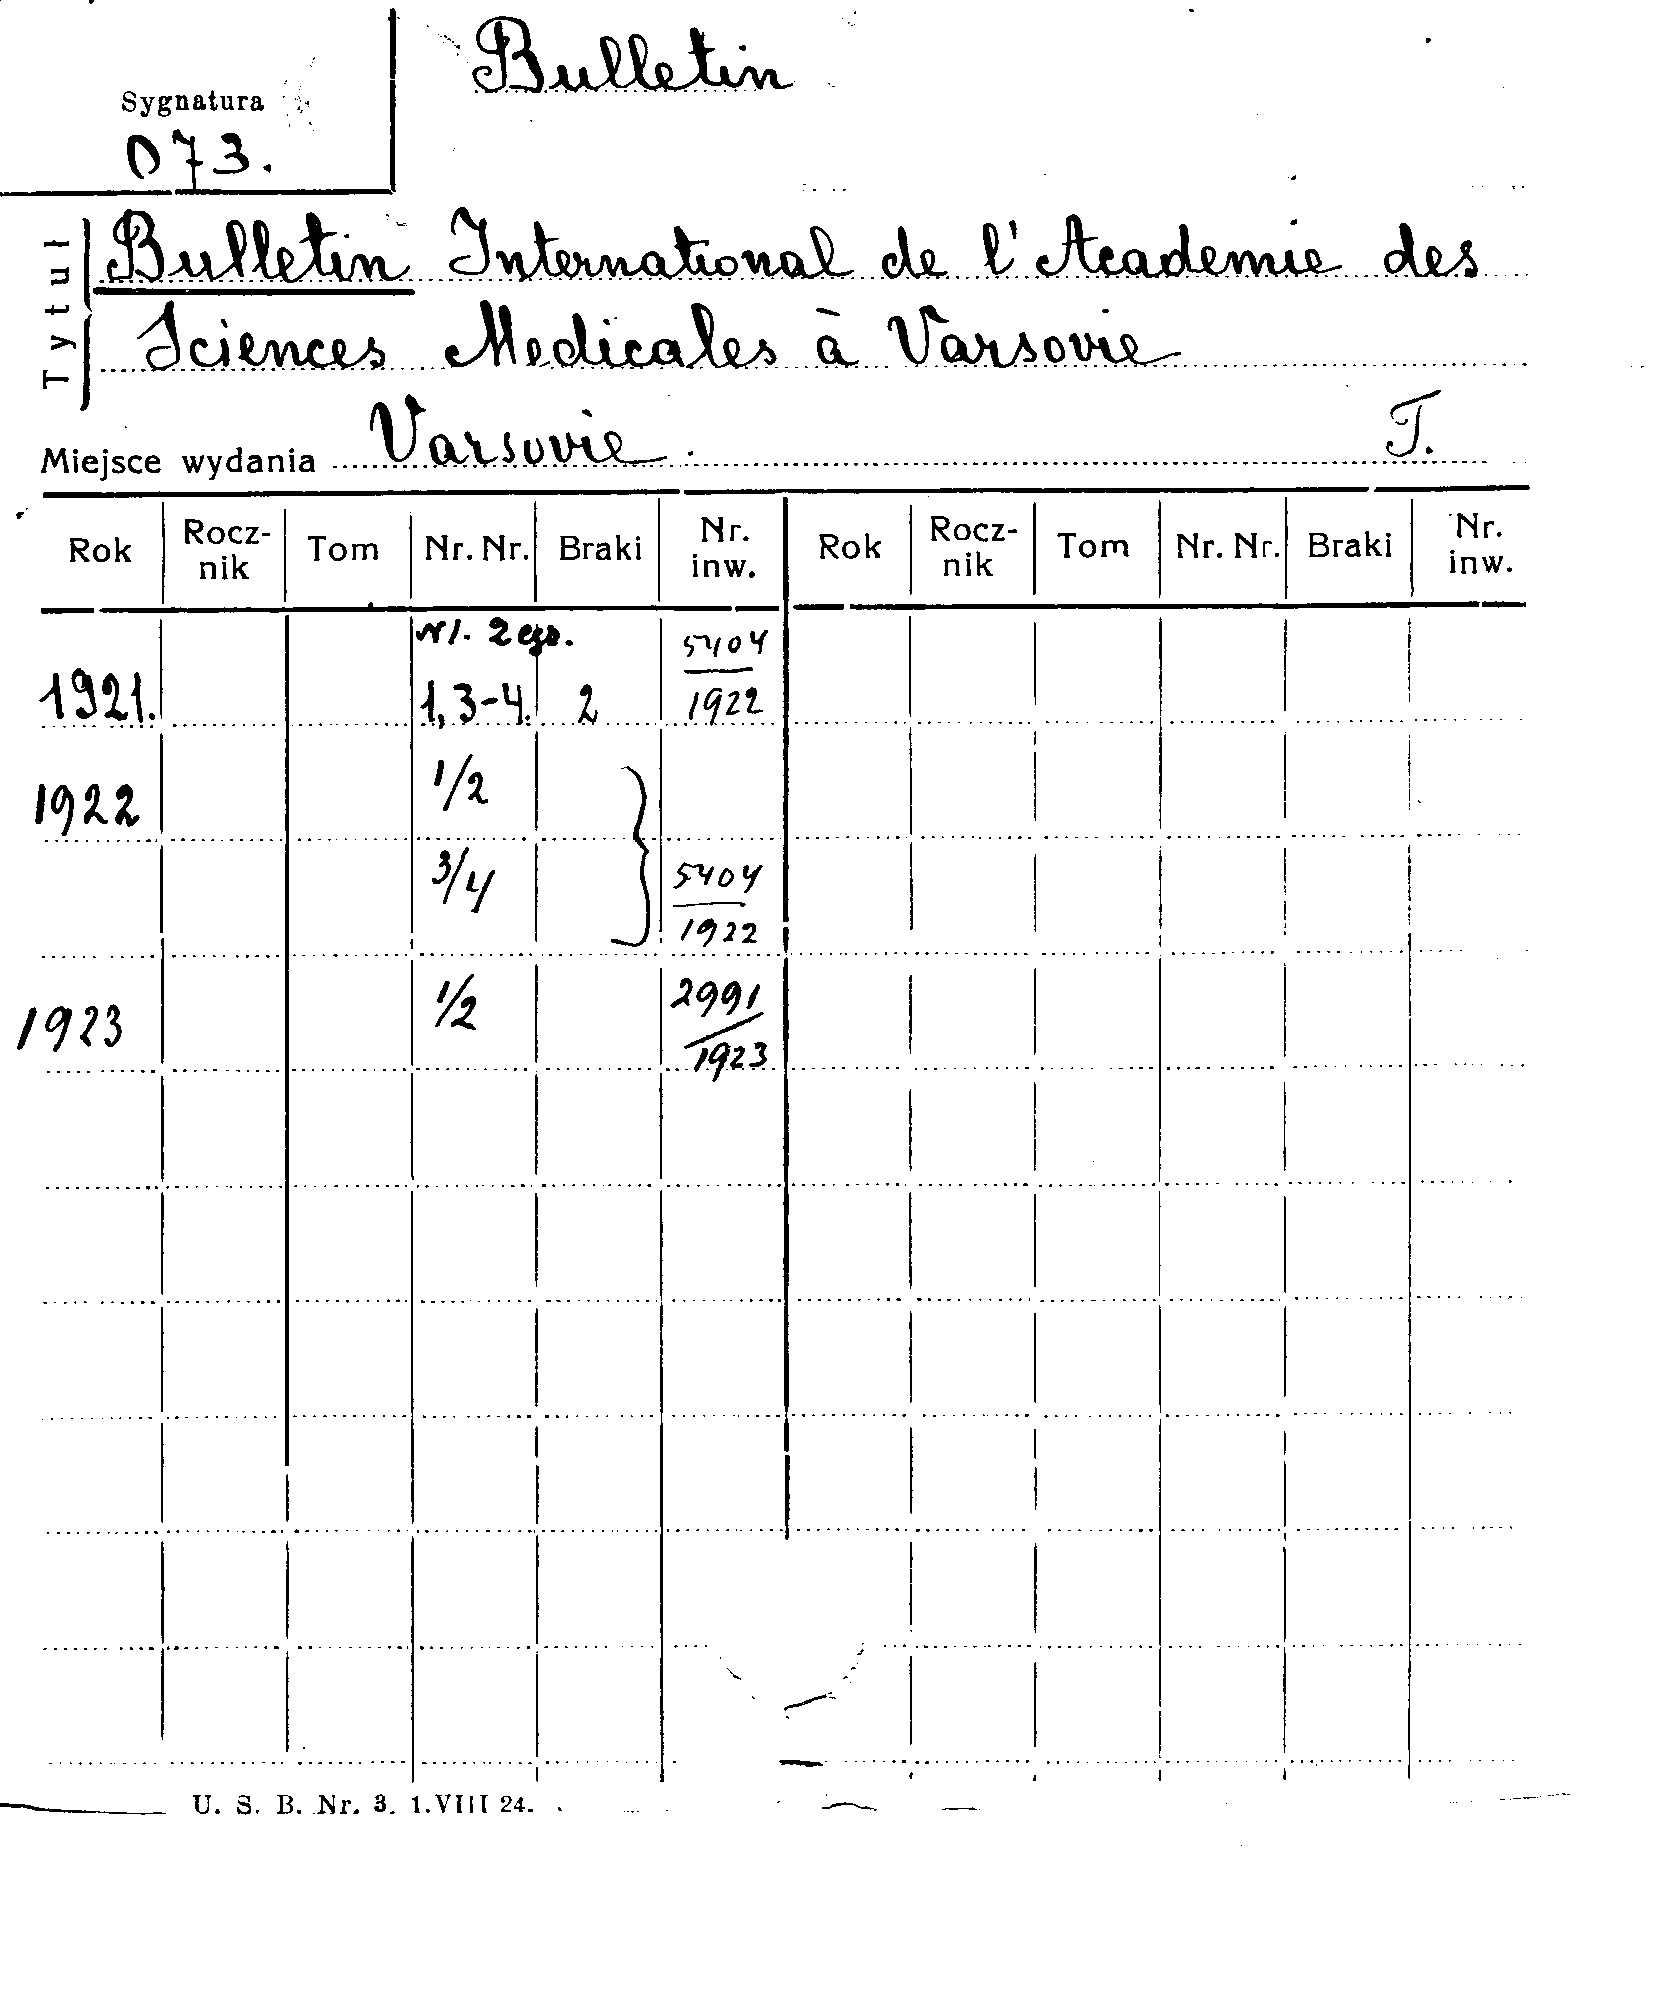 Bulletin
Sygnatura
073.
Tytuł
Bulletin International de l'Academie des
Sciences Medicales à Varsovie
Miejsce wydania Varsovie. T.
Rok Rocz-nik Tom Nr. Nr. Braki Nr. inw. Rok Rocz-nik Tom Nr. Nr. Braki Nr. inw.
Nr 1. 2 egz. 5404
1921. 1, 3-4. 2 1922
1922 1/2
3/4 5404
1922
1923 1/2 2991
1923
U. S. B. Nr. 3. 1.VIII 24.